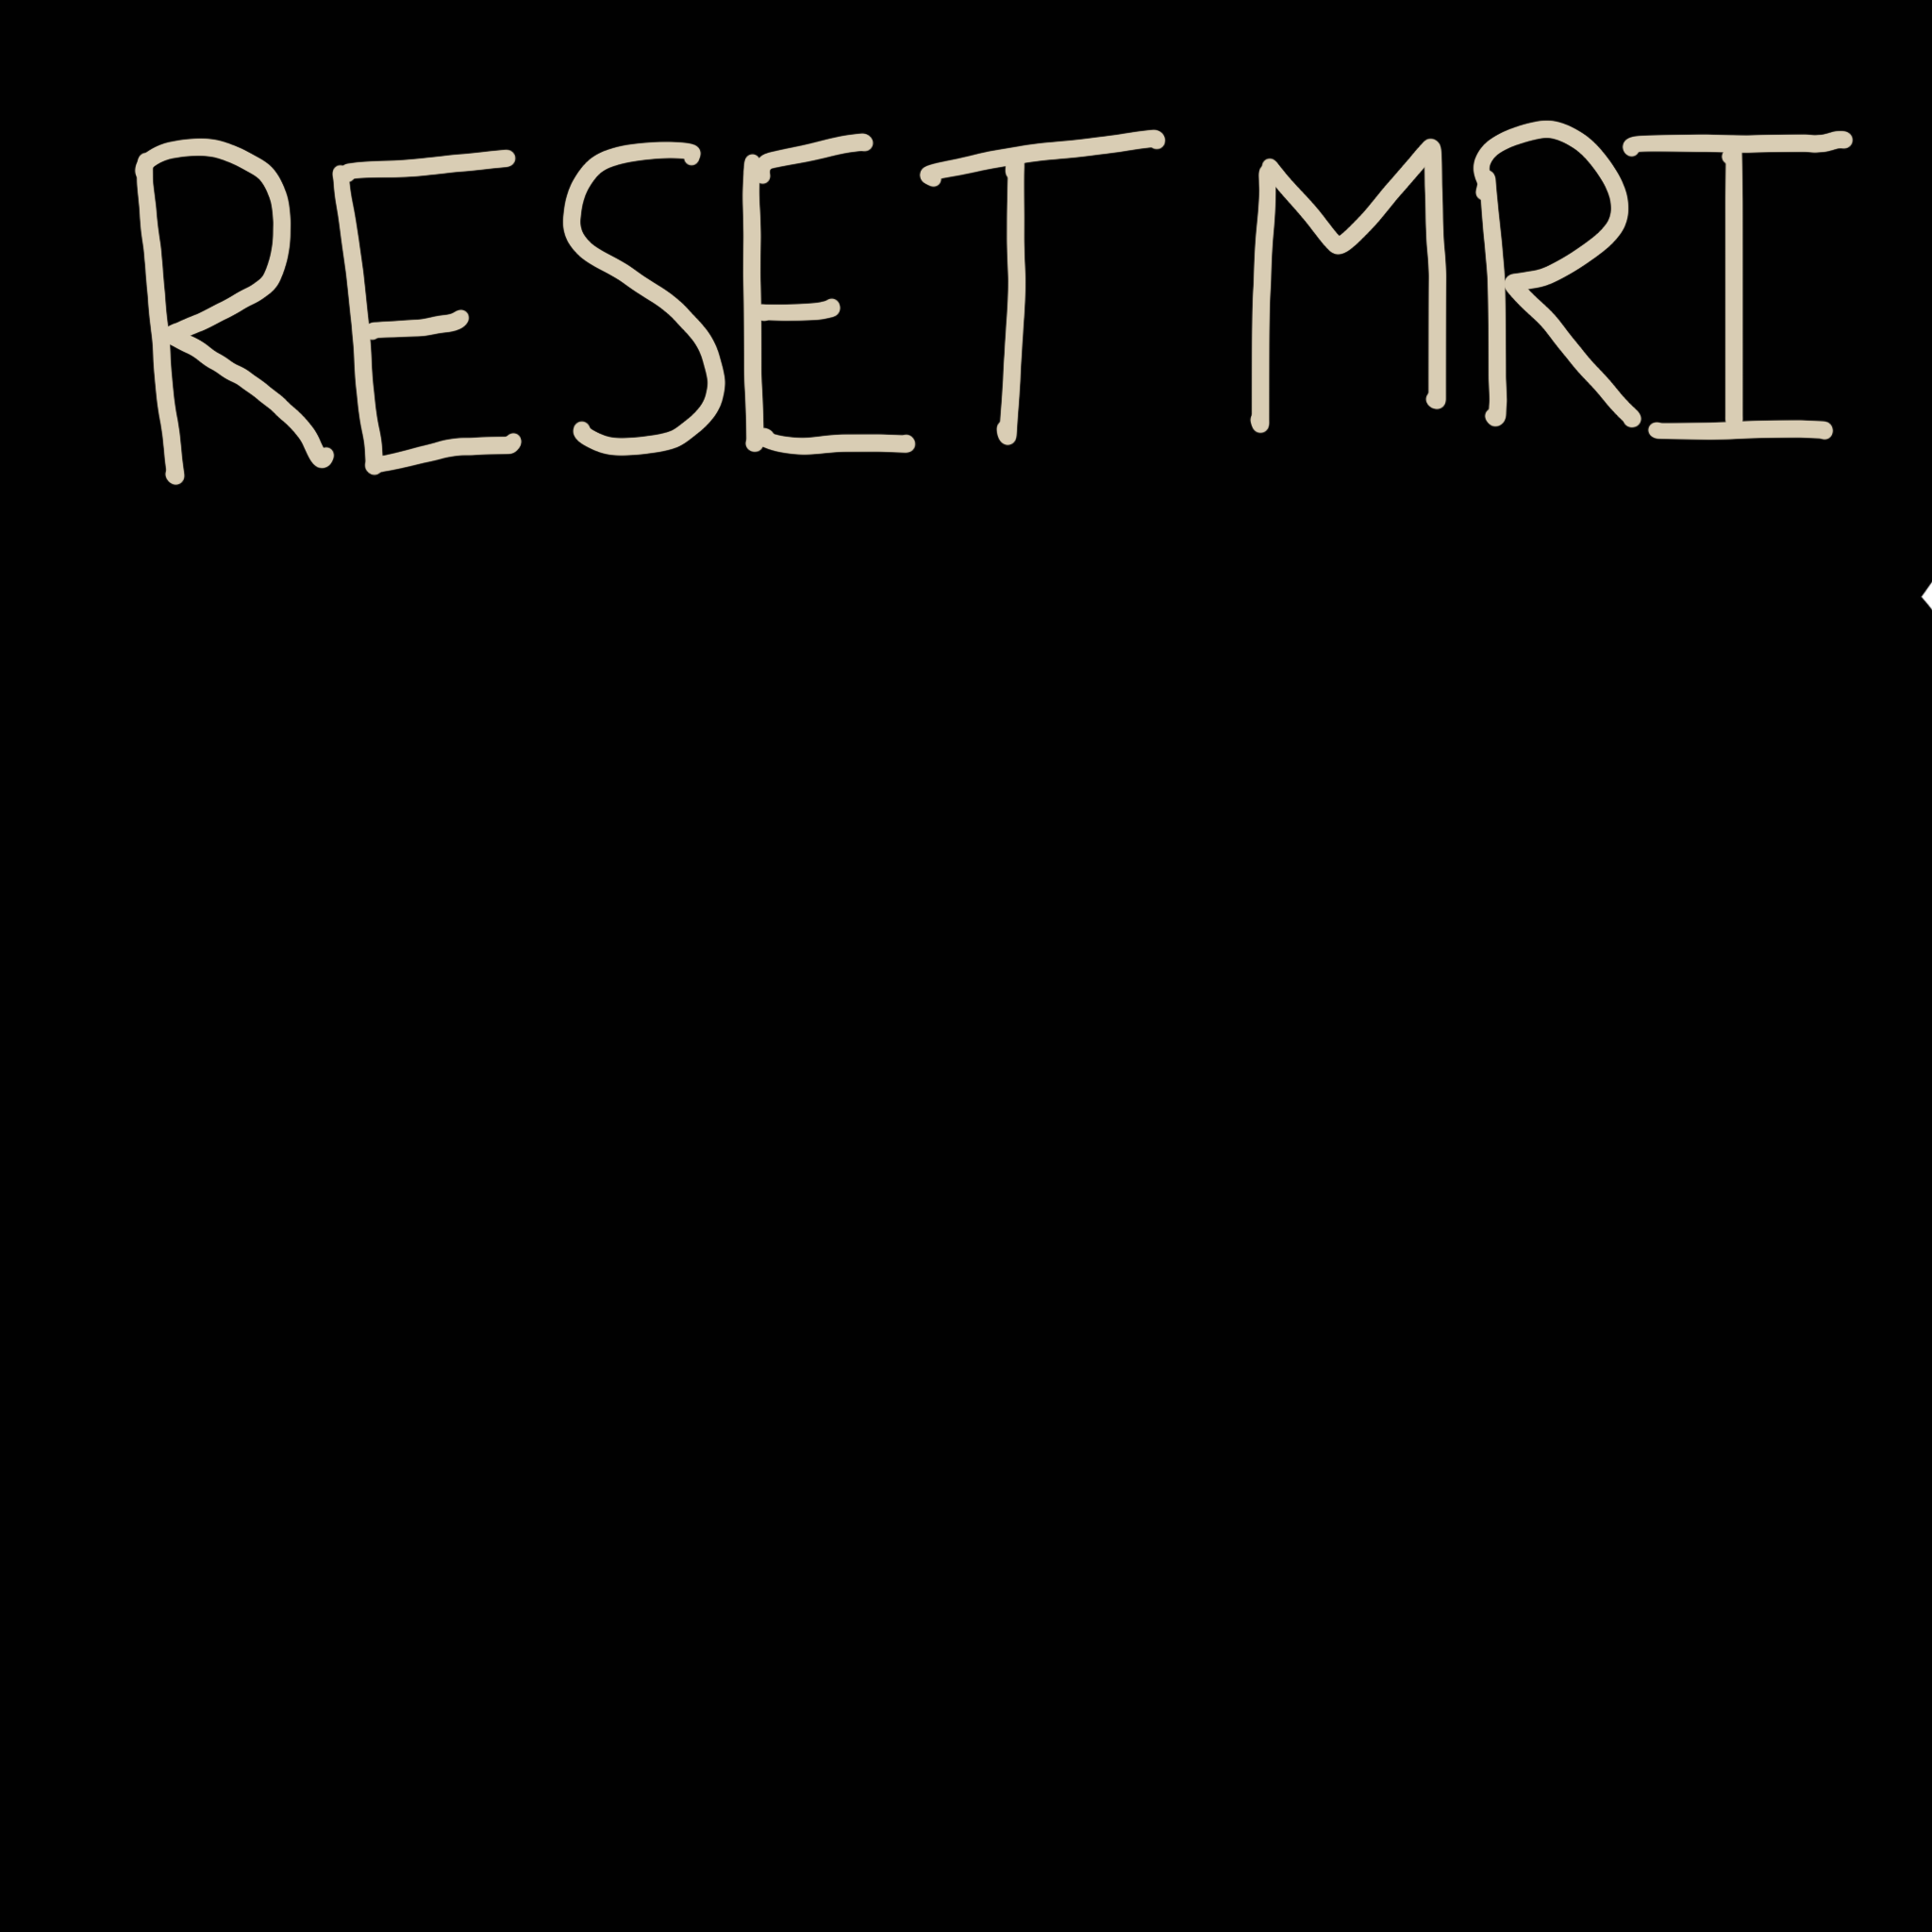 RESET MRI